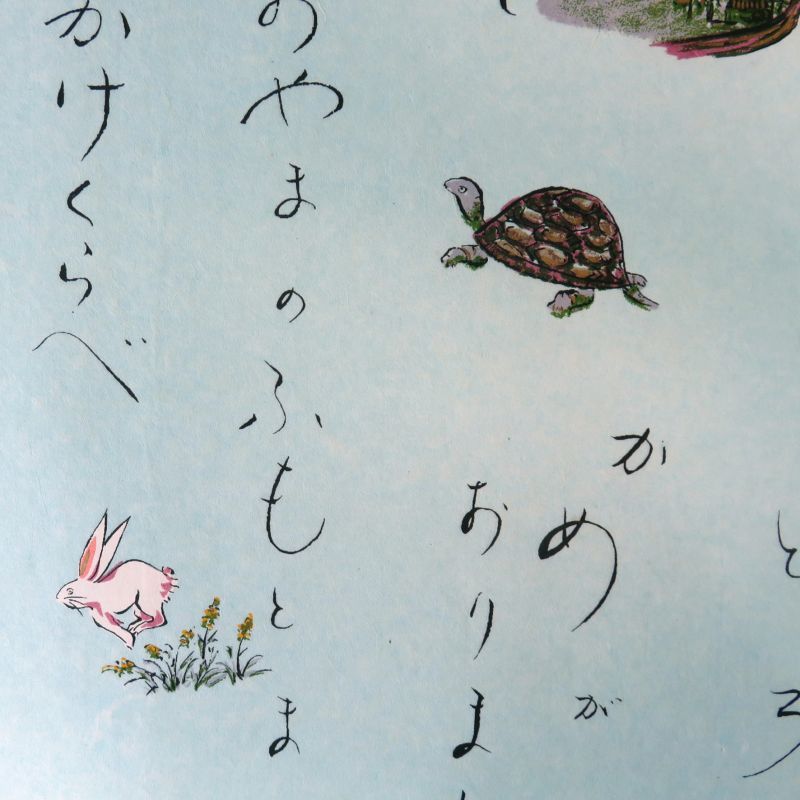 かめが
おりま
やまのふもとま
かけくらべ